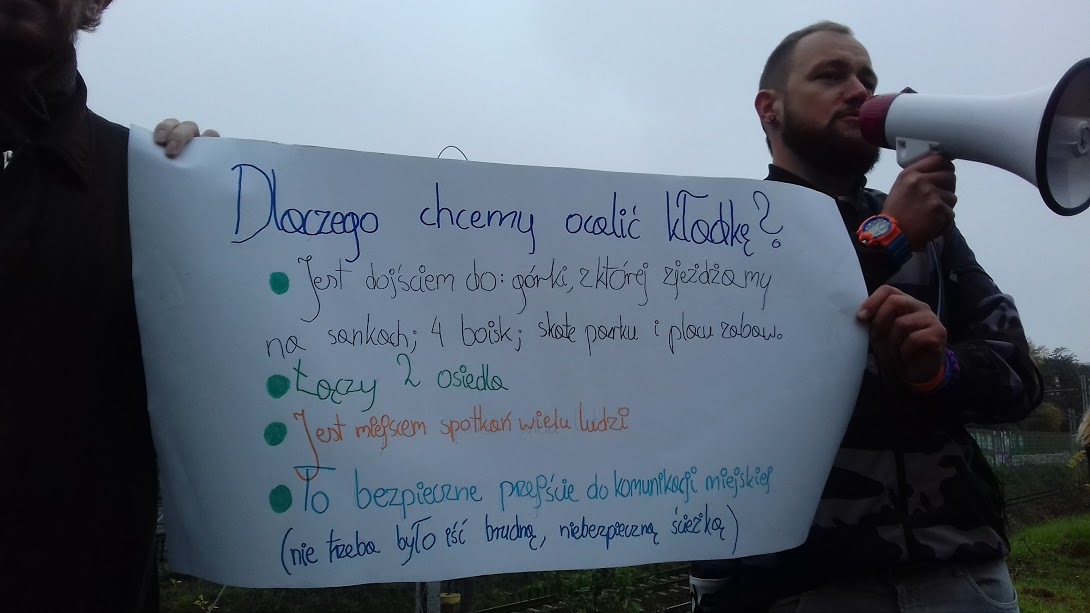 Dlaczego chcemy ocalić kładkę?
• Jest dojściem do: górki, z której zjeżdżamy
na sankach; 4 boisk; skate parku i placu zabaw.
• Łączy 2 osiedla
• Jest miejscem spotkań wielu ludzi
• To bezpieczne przejście do komunikacji miejskiej
(nie trzeba było iść brudną, niebezpieczną ścieżką)